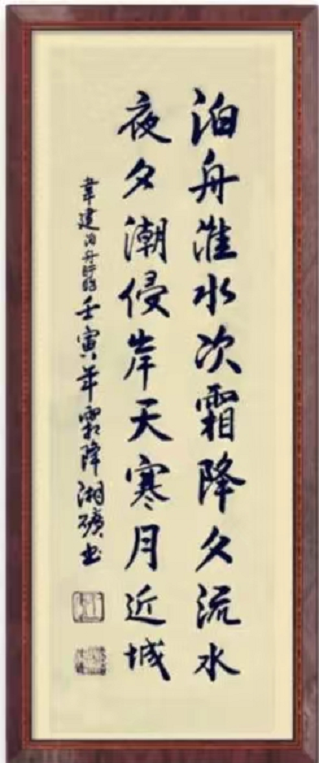 泊舟淮水次霜降久流水
夜夕潮侵岸天寒月近城
韋建泊舟盱眙壬寅年霜降湘礦书